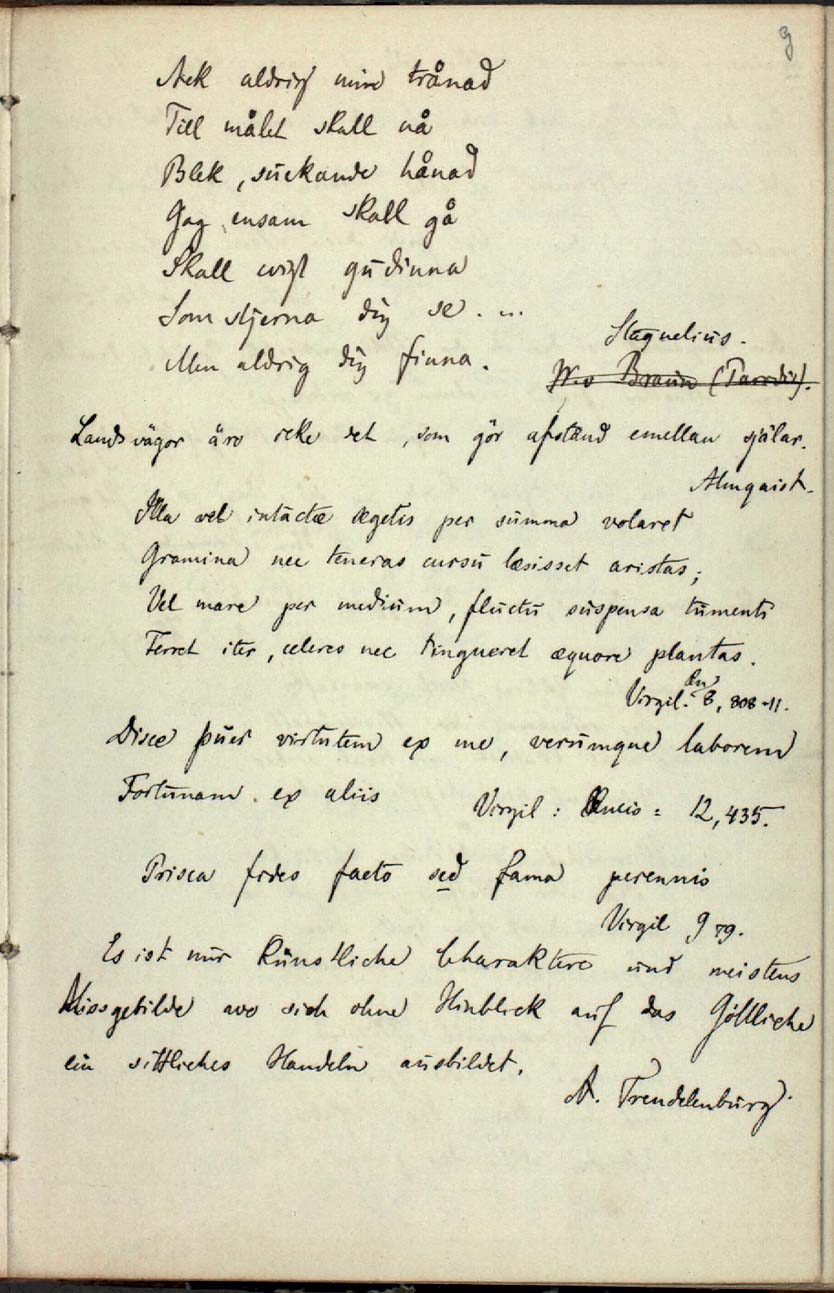 9
Ack aldrig min trånad
Till målet skall nå
Blek, suckande hånad
Jag ensam skall gå
Skall evigt gudinna
Som stjerna dig se. ...
Men aldrig dig finna.
Stagnelius.
W. v Braun (Parodi).
Landsvägor äro icke det, som gör afstånd emellan själar.
Almquist.
Illa vel intactæ segetis per summa volaret
Gramina nec teneras cursu læsisset aristas;
Vel mare per medium, fluctu suspensa tumenti
Ferret iter, celeres nec tingueret æquore plantas.
Virgil. Æn 8, 808-11.
Disce puer virtutem ex me, verumque laborem
Fortunam ex aliis
Virgil: Æneis: 12, 435.
Prisca fides facto sed fama perennis
Virgil 9 79.
Es ist nur künstliche Charaktere und meistens
Missgebilde wo sich ohne Hinblick auf das Göttliche
ein sittliches Handeln ausbildet.
A. Trendelenburg.